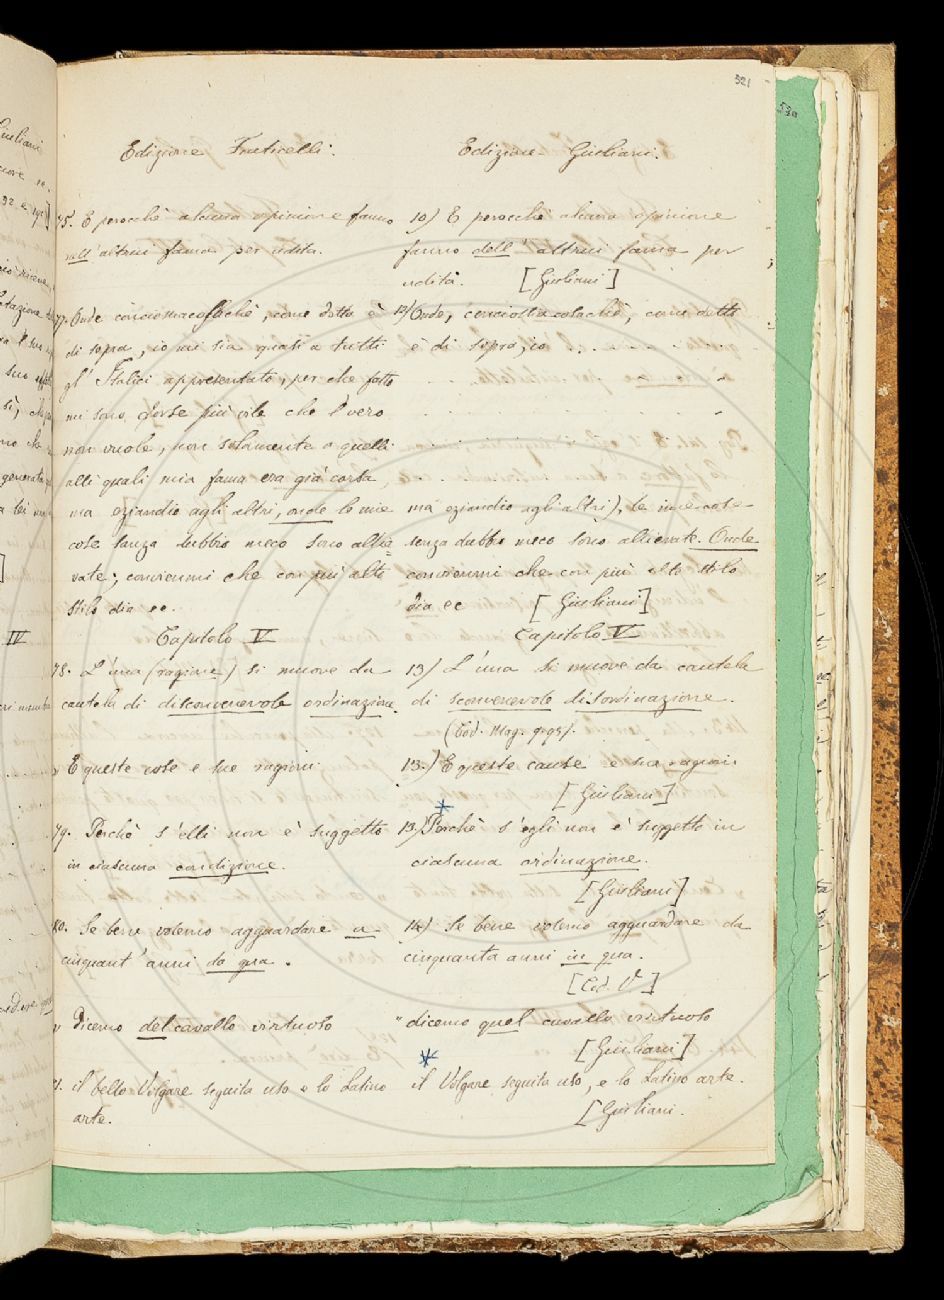 521
530
Edizione Fraticelli.
75. E perocchè alcuna opinione fanno
nell' altrui fama per udita.
77. Onde conciossiacosachè, come detto è
di sopra, io mi sia quasi a tutti
gl' Italici appresentato, per che fatto
mi sono forse più vile che 'l vero
non vuole, non solamente a quelli
alli quali mia fama era già corsa,
ma eziandio agli altri, onde le mie
cose sanza dubbio meco sono allie=
vate; conviemmi che con più alto
stilo dia ec.
Capitolo V
78. L'una (ragione) si muove da
cautela di disconvenevole ordinazione.
" E queste cose e sue ragioni
79. Perchè s'elli non è suggetto
in ciascuna condizione.
80. Se bene volemo agguardare a
cinquant' anni da qua.
" Dicemo del cavallo virtuoso
81. il bello Volgare seguita uso e lo Latino
arte.
Edizione Giuliani.
10) E perocchè alcuna opinione
fanno dell' altrui fama per
udita. [Giuliani]
12) Onde, conciossiacosachè, come detto
è di sopra, io
ma eziandio agli altri), le mie cose
senza dubbio meco sono alleviate. Onde
conviemmi che con più alto stilo
dia ec [Giuliani]
Capitolo V
13) L'una si muove da cautela
di sconvenevole disordinazione.
(Cod. Mag. 
13.) E queste cause e sua ragioni
[Giuliani]
13) Perchè s'egli non è suggetto in
ciascuna ordinazione.
[Giuliani]
14) Se bene volemo agguardare da
cinquanta anni in qua.
[Cod. V.]
" dicemo quel cavallo virtuoso
[Giuliani]
il Volgare seguita uso, e lo Latino arte.
[Giuliani.